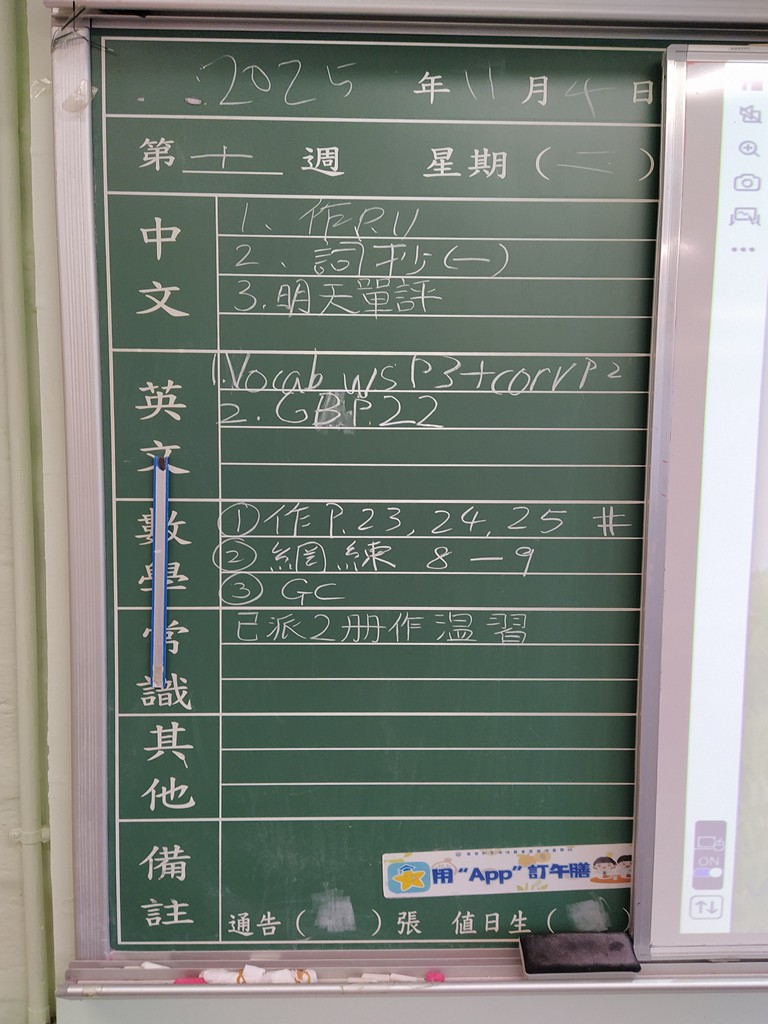 2025 年 11 月 4 日
第 十 週 星期 ( 二 )
中文
1. 作P.11
2. 詞抄(一)
3. 明天單評
英文
1. Vocab ws P3+corr P2
2. GB P.22
數學
① 作 P.23, 24, 25 #
② 網練 8－9
③ GC
常識
已派2册作溫習
其他
備註
用“App”訂午膳
通告 ( ) 張 值日生 ( )
ON